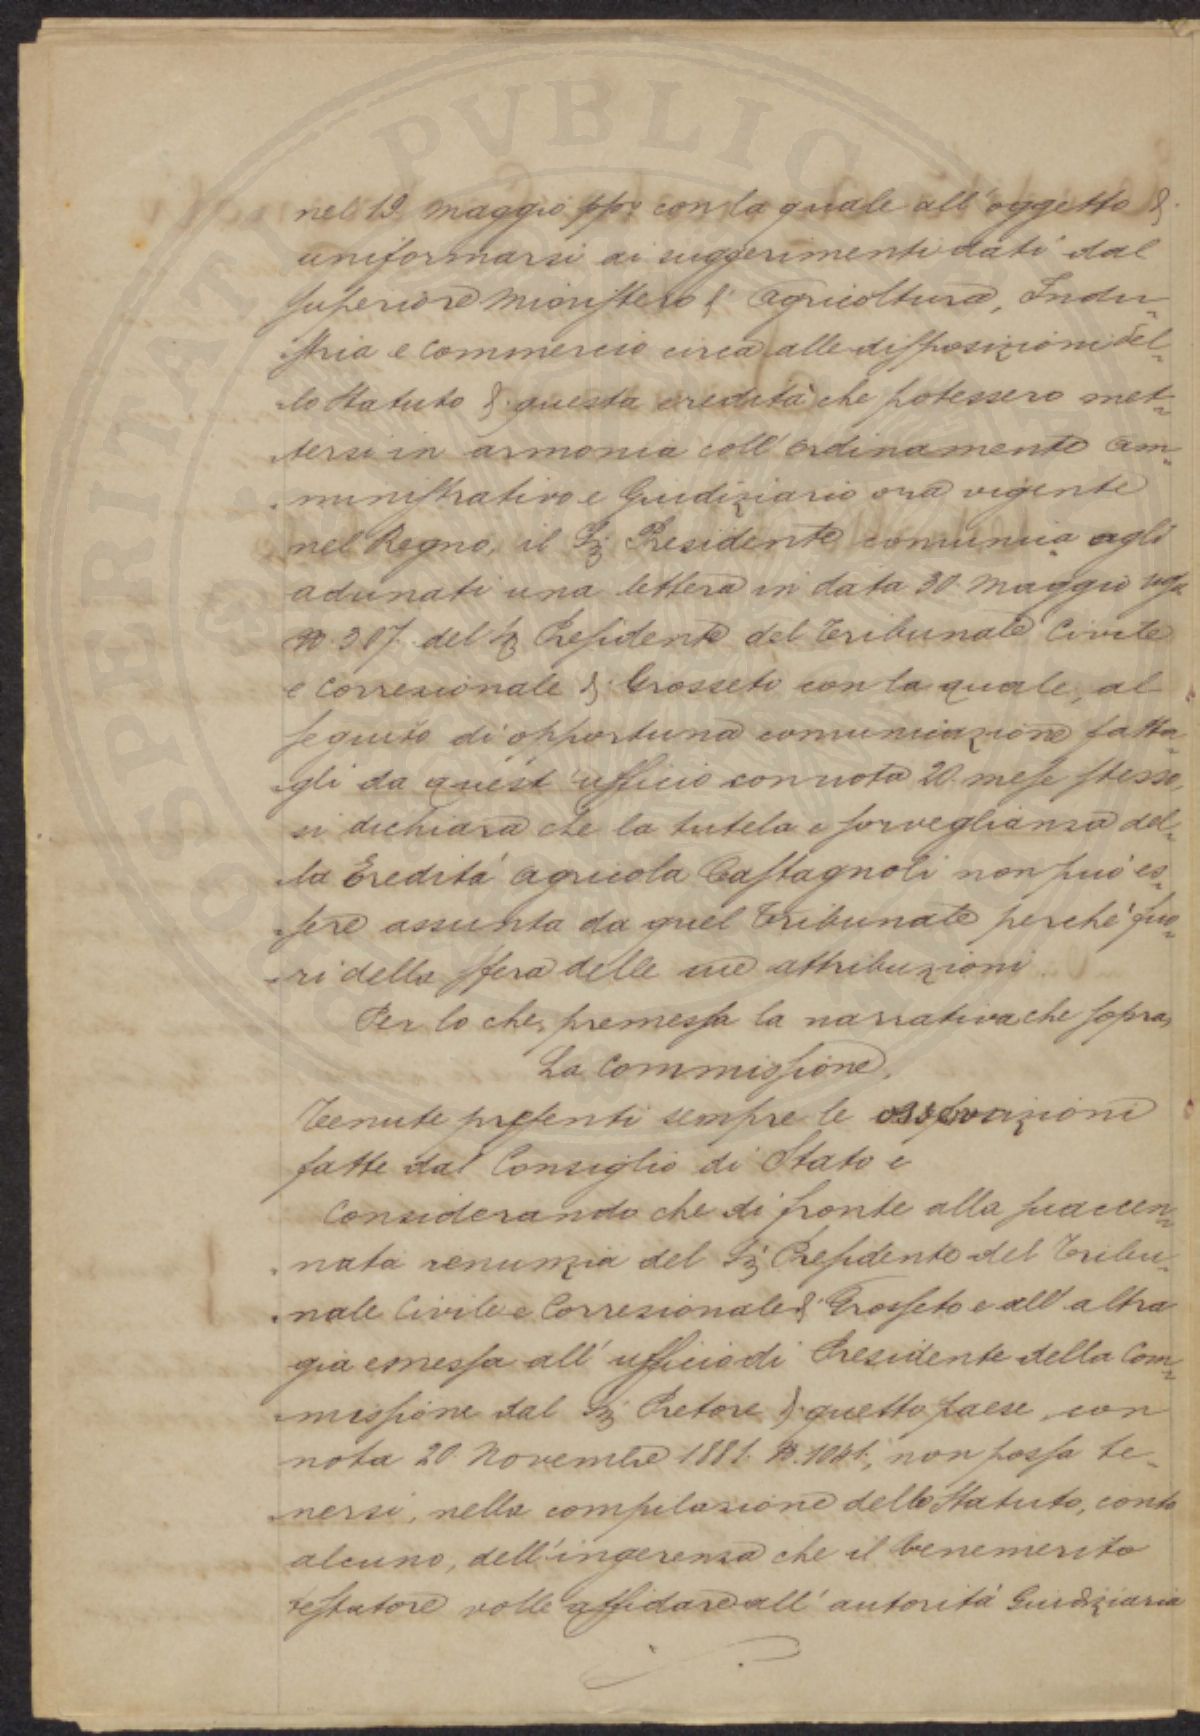 nel 19 maggio ppo con la quale all'oggetto d
uniformarsi ai suggerimenti dati dal
superiore Ministero d'Agricoltura, Indu-
-stria e Commercio circa alle disposizioni del-
-lo Statuto d. questa eredità che potessero met-
-tersi in armonia coll'ordinamento am-
-ministrativo e Giudiziario ora vigente
nel Regno, il Sig Presidente comunica agli
adunati una lettera in data 30 maggio
N. 307. del Sig Presidente del Tribunale Civile
e Correzionale d. Grosseto con la quale, al
seguito di opportuna comunicazione fatta-
-gli da quest'ufficio con nota 20 mese stesso,
si dichiara che la tutela e sorveglianza del-
-la Eredità agricola Castagnoli non può es-
-sere assunta da quel Tribunale perché fuo-
-ri della sfera delle sue attribuzioni.
Per lo che, premessa la narrativa che sopra,
La Commissione,
Tenute presenti sempre le osservazioni
fatte dal Consiglio di Stato e
Considerando che di fronte alla suaccen-
-nata renunzia del Sig Presidente del Tribu-
-nale Civile e Correzionale d. Grosseto e all'altra
già emessa all'ufficio di Presidente della Com-
-missione dal Sig Pretore d. questo paese, con
nota 20. Novembre 1881. N. 1041., non possa te-
-nersi, nella compilazione dello Statuto, conto
alcuno, dell'ingerenza che il benemerito
testatore volle affidare all'autorità Giudiziaria